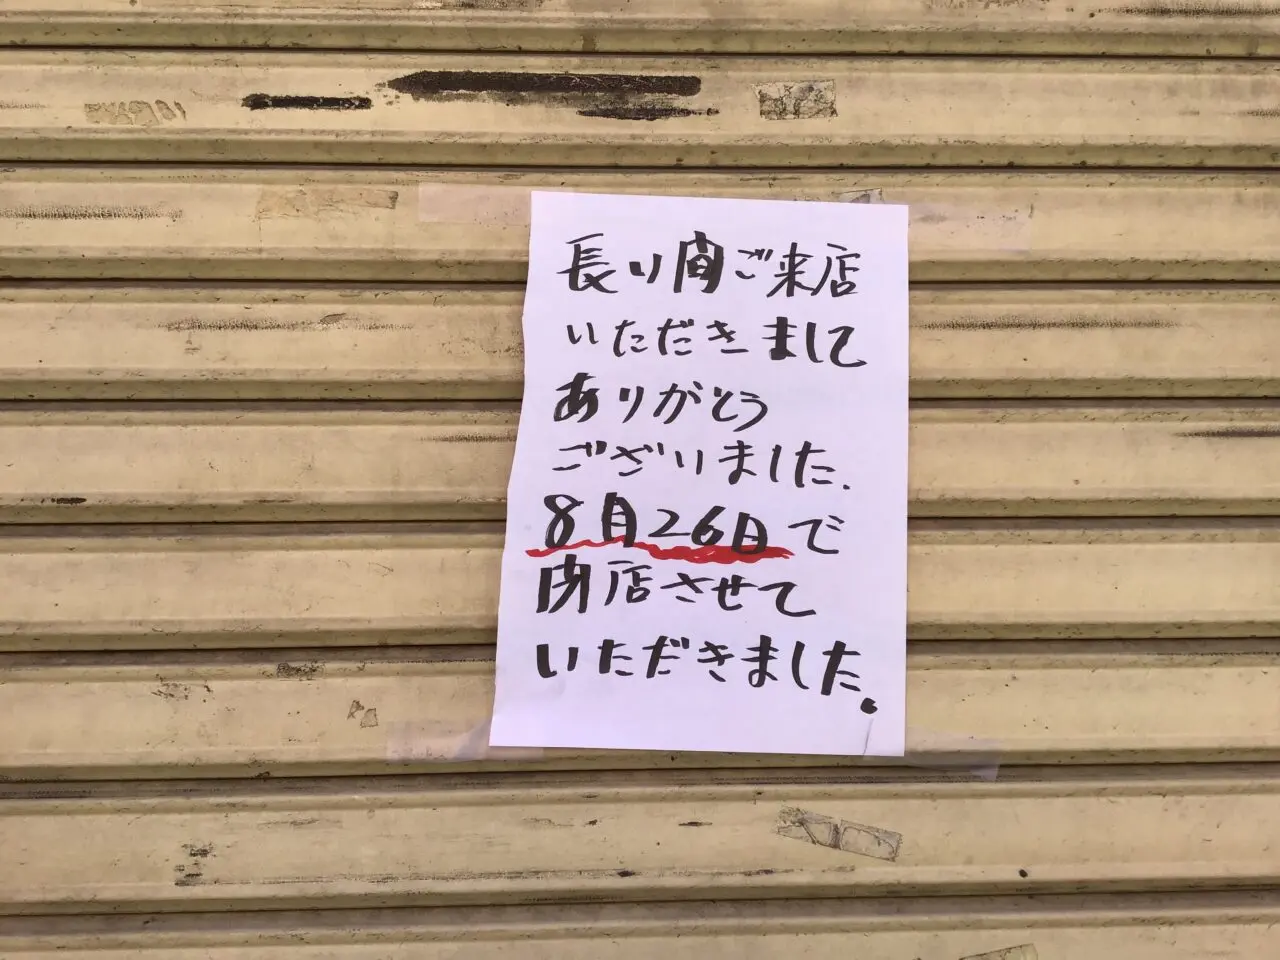 長い間ご来店
いただきまして
ありがとう
ございました.
8月26日で
閉店させて
いただきました。